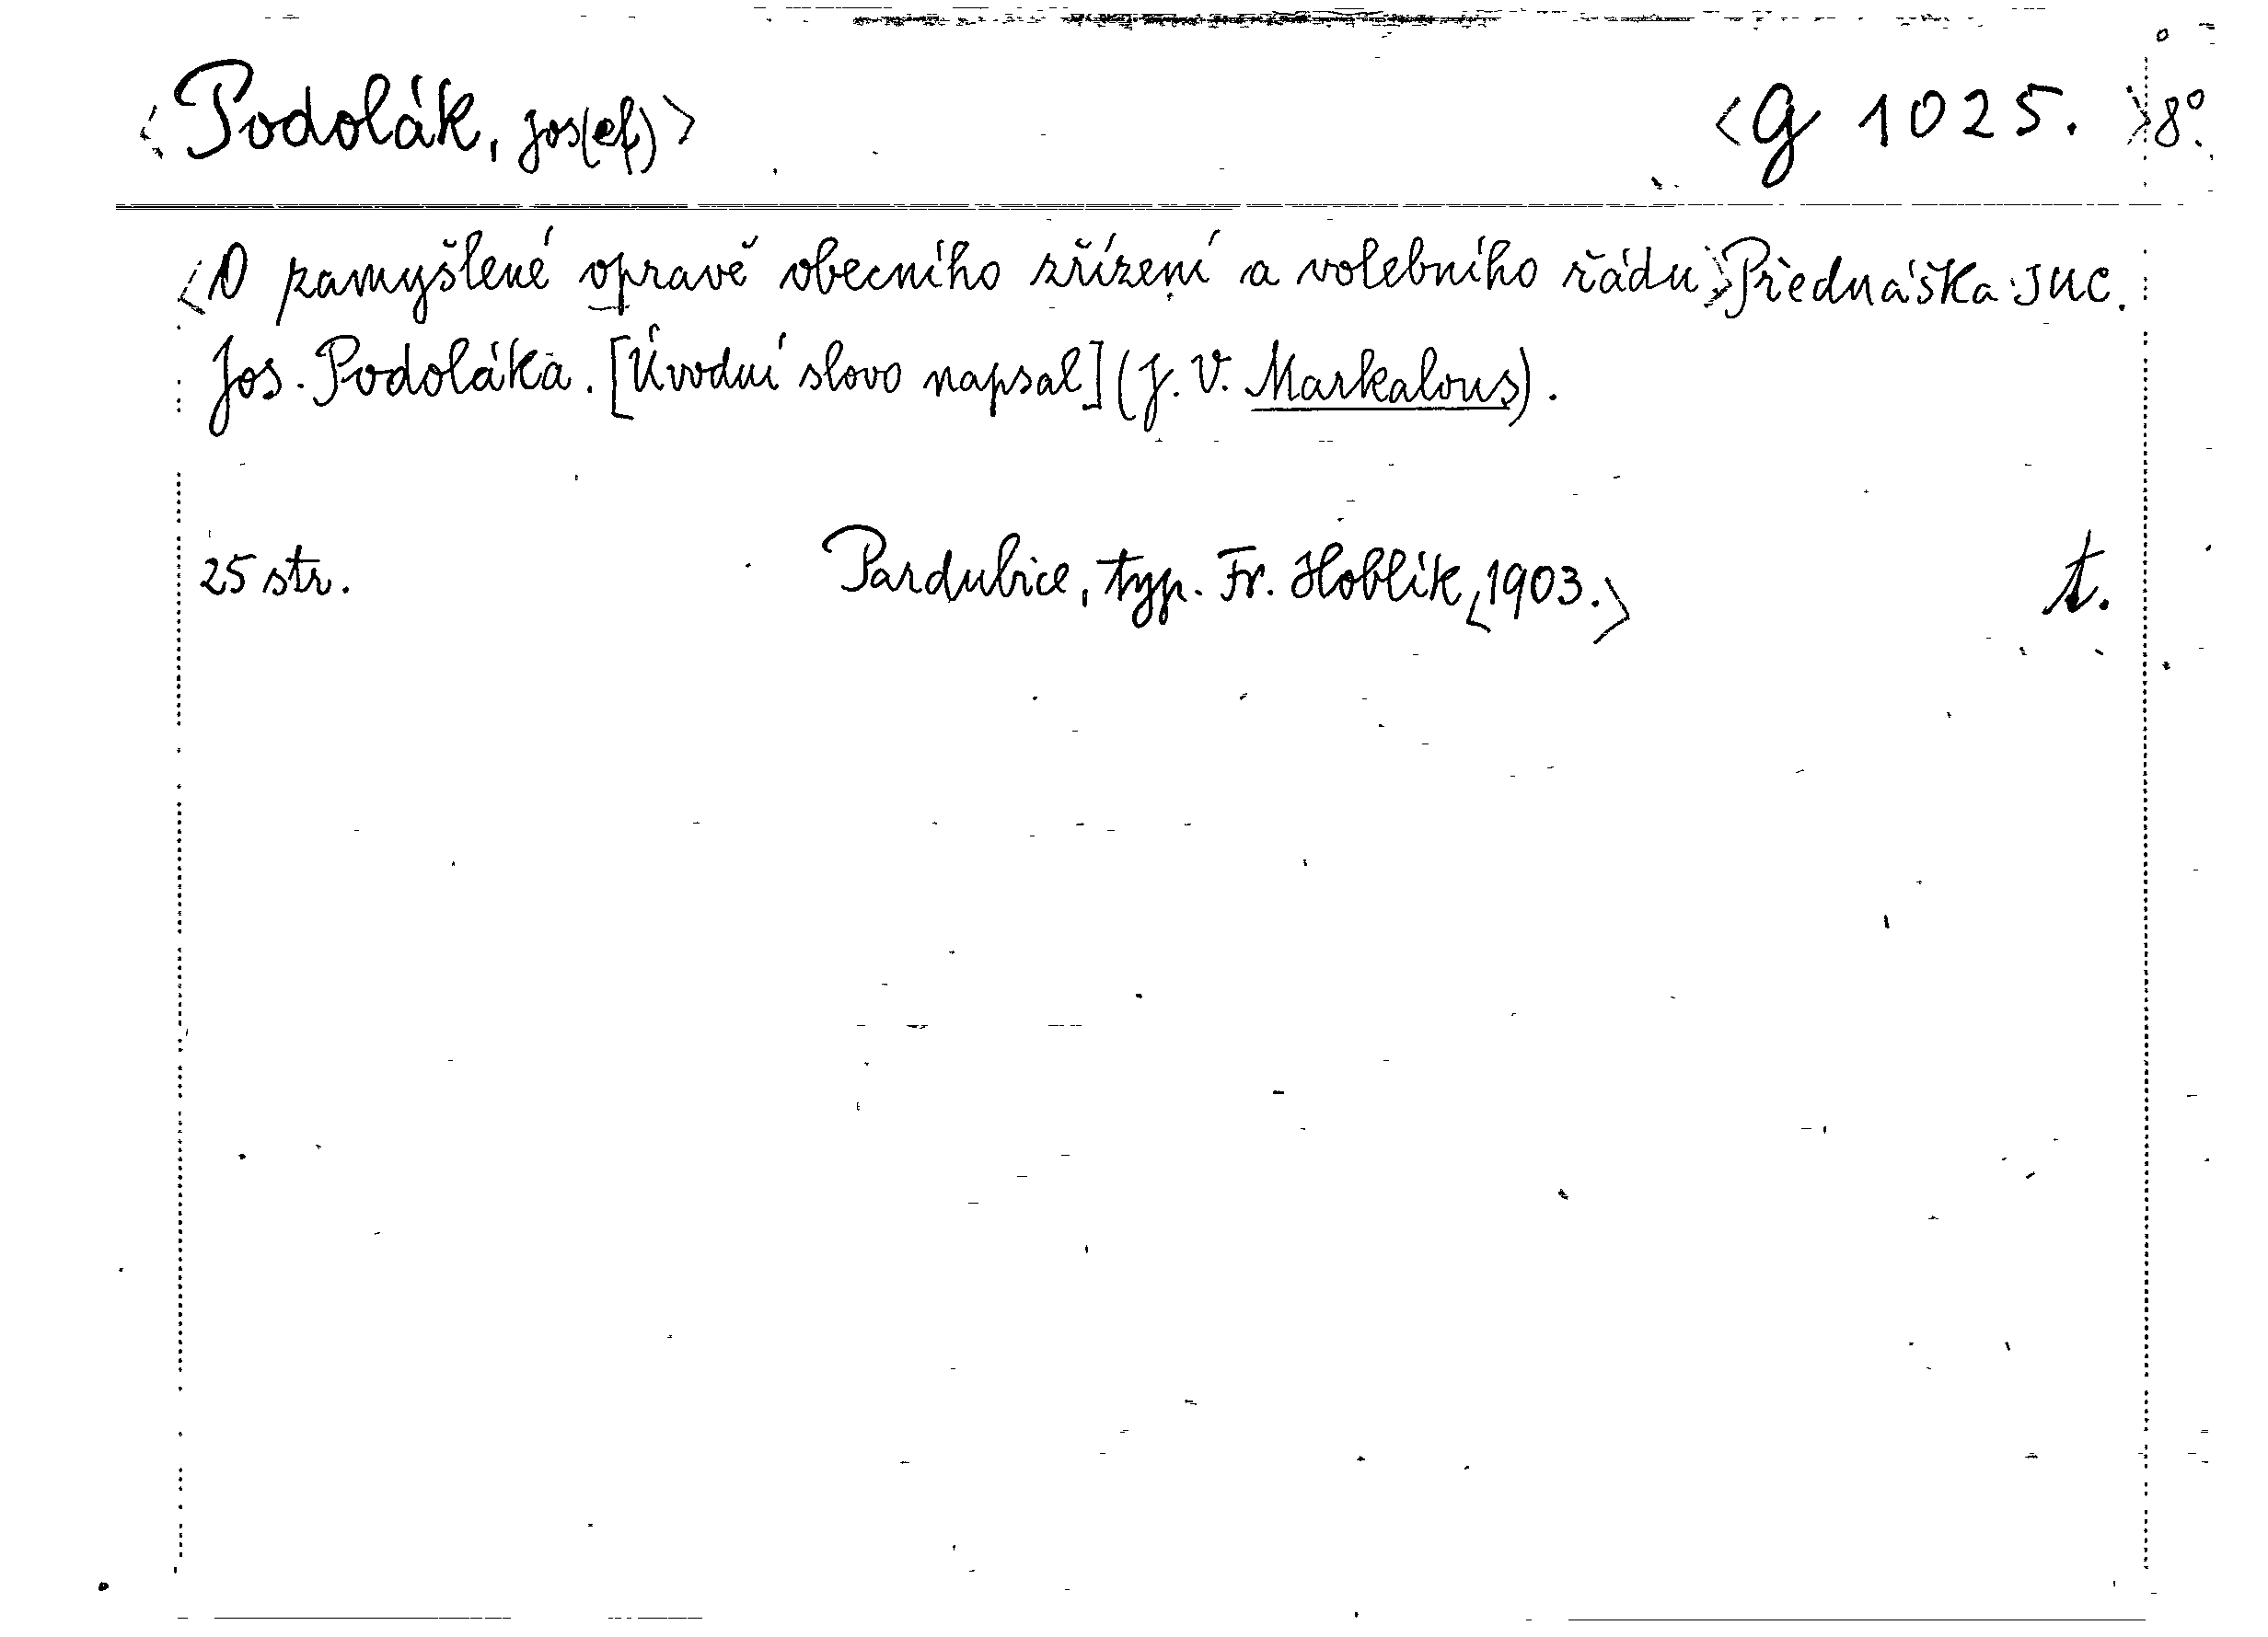 <Podolák, Jos(ef)> <G 1025. >8°.
<O zamyšlené opravě obecního zřízení a volebního řádu> Přednáška JUC.
Jos. Podoláka. [Úvodní slovo napsal] (J. V. Markalous).
25 str. Pardubice, typ. Fr. Hoblík <1903.> t.